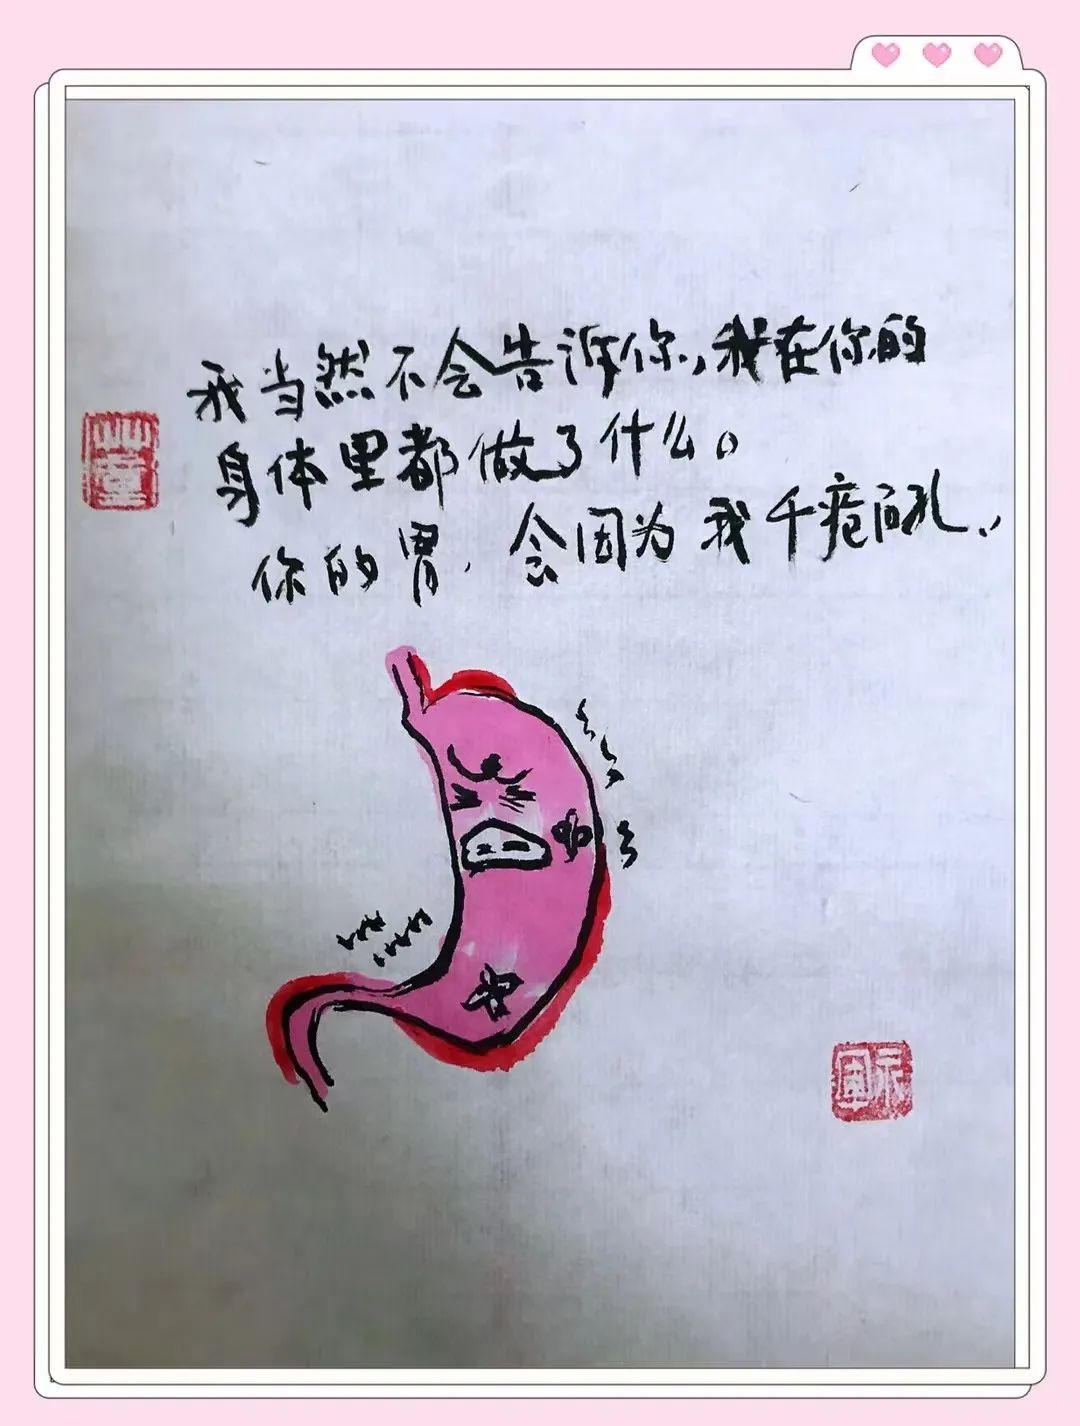 我当然不会告诉你,我在你的
身体里都做了什么。
你的胃,会因为我千疮百孔..